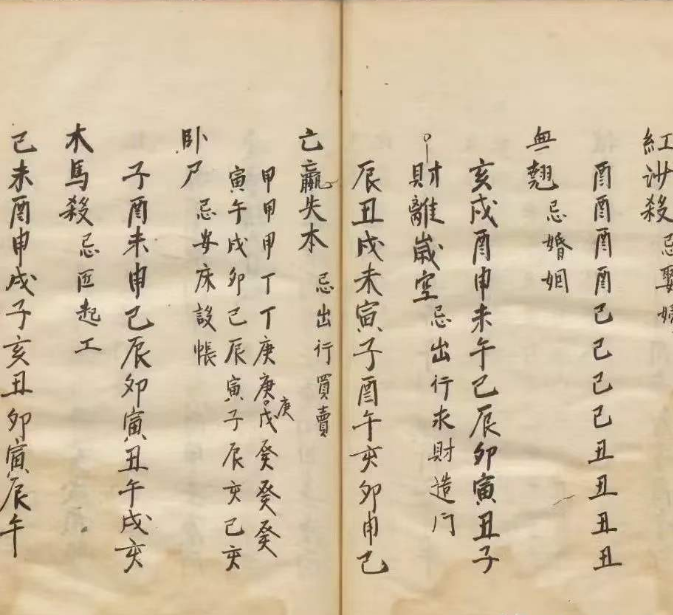 紅沙殺 忌娶
酉酉酉酉巳巳巳巳丑丑丑丑
無翹 忌婚姻
亥戌酉申未午巳辰卯寅丑子
財離歲空 忌出行求財造门
辰丑戌未寅子酉午亥卯申巳
亡贏失本 忌出行買賣
甲甲甲丁丁庚庚戊庚癸癸癸
寅午戌卯巳辰寅子辰亥巳亥
卧尸 忌安床設帳
子酉未申巳辰卯寅丑午戌亥
木馬殺 忌匠起工
巳未酉申戌子亥丑卯寅辰午